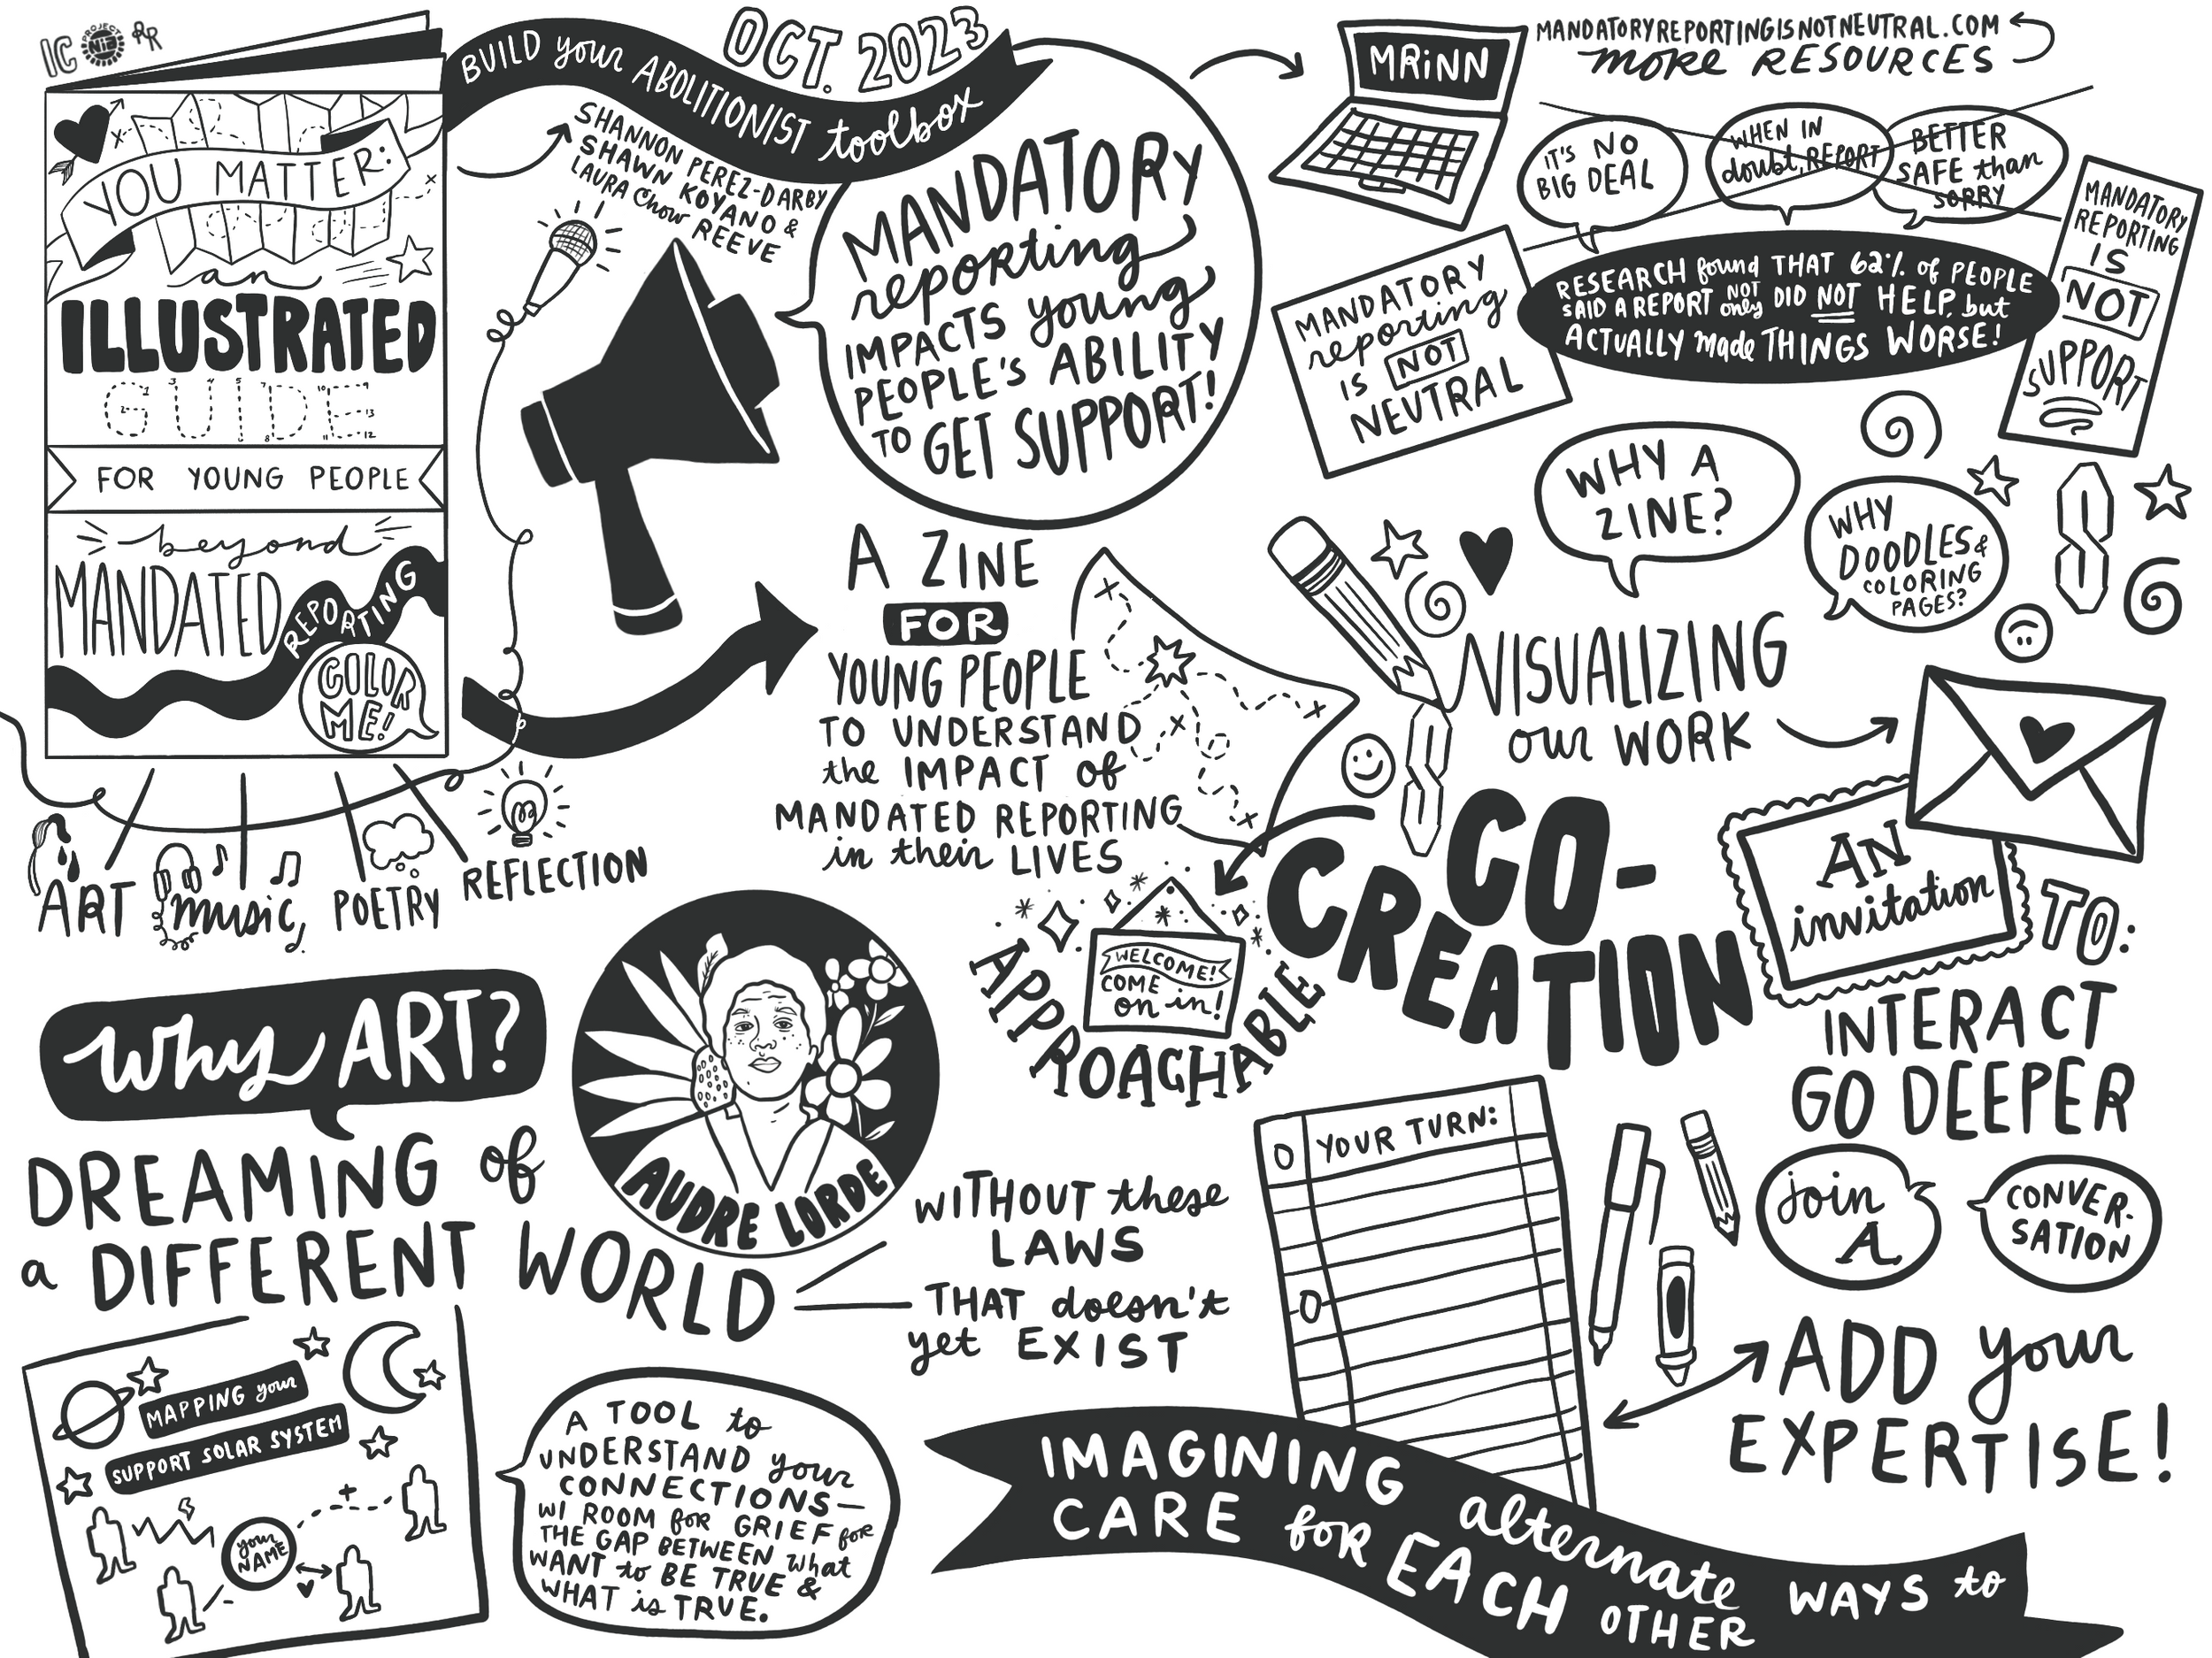 IC
PROJECT
NIA
RR
BUILD your ABOLITIONIST toolbox
OCT. 2023
SHANNON PEREZ-DARBY
SHAWN KOYANO &
LAURA Chow REEVE
YOU MATTER:
an
ILLUSTRATED
GUIDE
FOR YOUNG PEOPLE
beyond
MANDATED
REPORTING
COLOR
ME!
ART
music,
POETRY
REFLECTION
MANDATORY
reporting
IMPACTS young
PEOPLE'S ABILITY
TO GET SUPPORT!
MRiNN
MANDATORYREPORTINGISNOTNEUTRAL.COM
more RESOURCES
IT'S NO
BIG DEAL
WHEN IN
doubt, REPORT
BETTER
SAFE than
SORRY
RESEARCH found THAT 62% of PEOPLE
SAID A REPORT NOT only DID NOT HELP, but
ACTUALLY made THINGS WORSE!
MANDATORY
reporting
IS NOT
NEUTRAL
MANDATORY
REPORTING
IS
NOT
SUPPORT
A ZINE
FOR
YOUNG PEOPLE
TO UNDERSTAND
the IMPACT of
MANDATED REPORTING
in their LIVES
WHY A
ZINE?
WHY
DOODLES &
COLORING
PAGES?
VISUALIZING
our WORK
CO-
CREATION
WELCOME!
COME
on in!
APPROACHABLE
AN
invitation
TO:
INTERACT
GO DEEPER
join
A
CONVER-
SATION
ADD your
EXPERTISE!
YOUR TURN:
why ART?
DREAMING of
a DIFFERENT WORLD
AUDRE LORDE
WITHOUT these
LAWS
THAT doesn't
yet EXIST
MAPPING your
SUPPORT SOLAR SYSTEM
your
NAME
A TOOL to
UNDERSTAND your
CONNECTIONS—
W/ ROOM for GRIEF for
THE GAP BETWEEN what
WANT to BE TRUE &
WHAT is TRUE.
IMAGINING alternate WAYS to
CARE for EACH OTHER